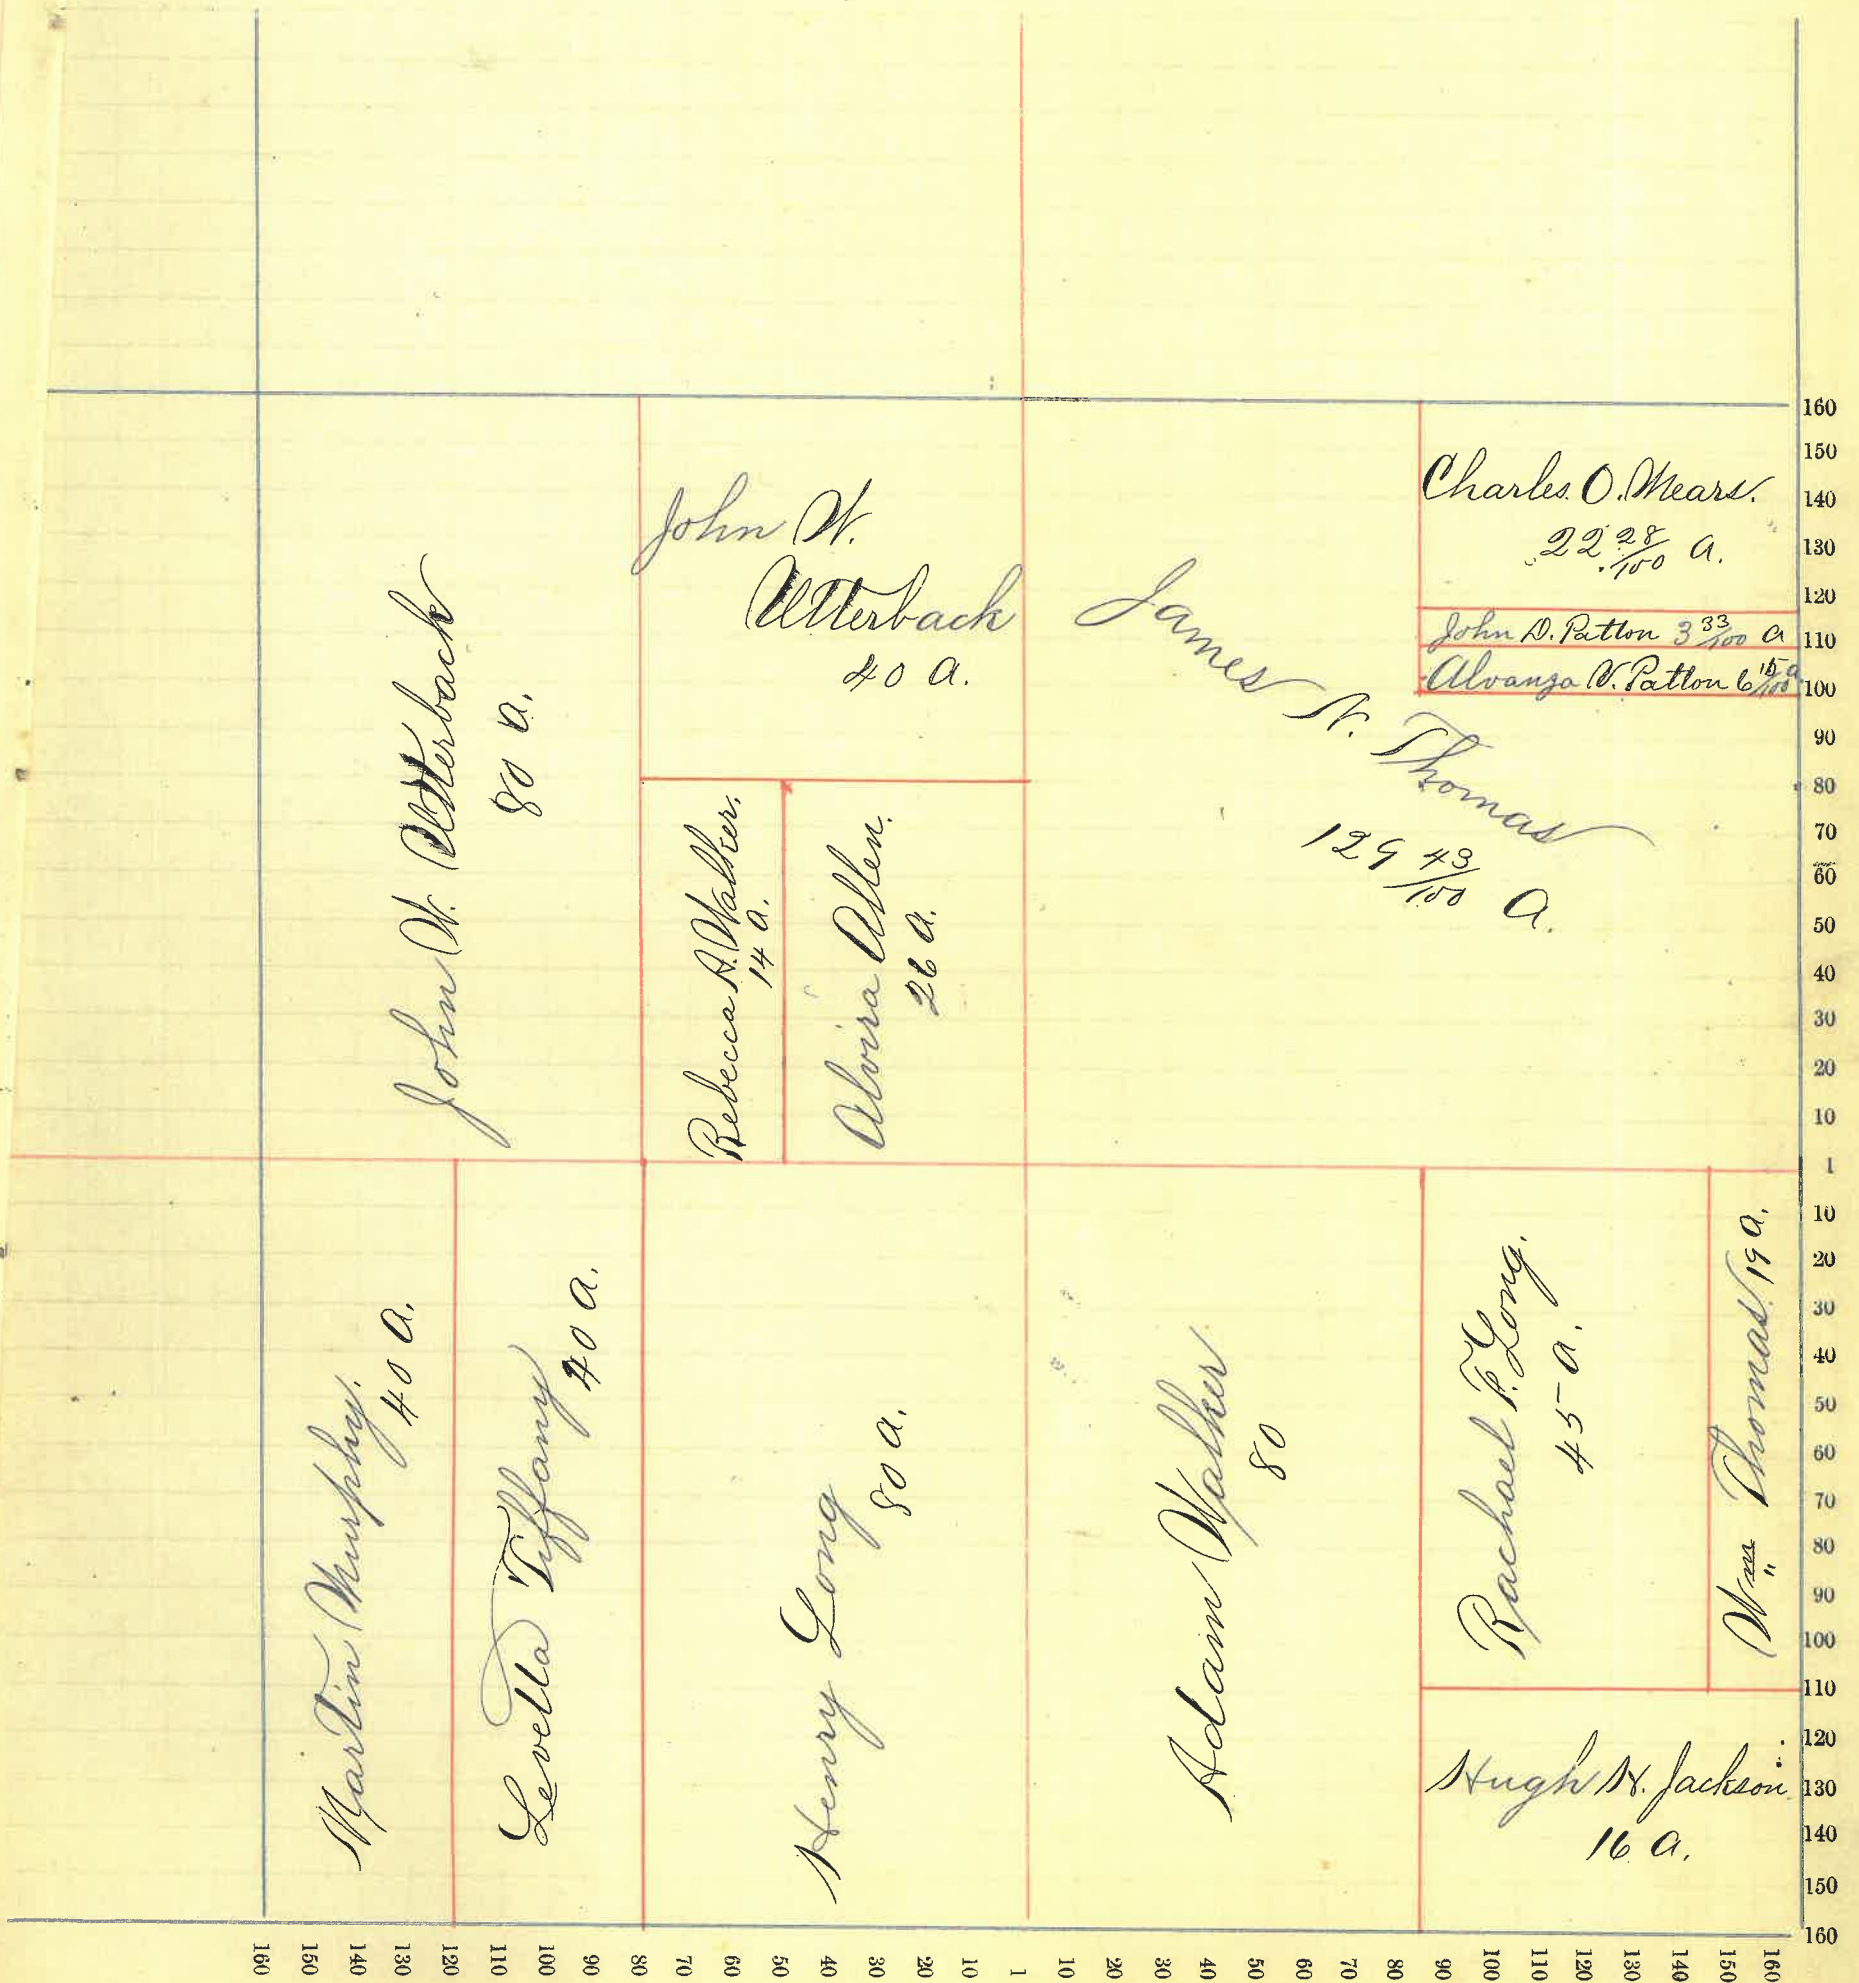 John W. Utterback
80 a.
John W.
Utterback
40 a.
Rebecca A. Walker.
14 a.
Alvira Allen.
26 a.
James N. Thomas
129 43/100 a.
Charles. O. Mears.
22 28/100 a.
John D. Patton 3 33/100 a
Alvanza V. Patton 6 15/100 a
Martin Murphy.
40 a.
Levella Tiffany
40 a.
Henry Long
80 a.
Adam Walker
80
Rachael F. Long.
45 a.
Wm Thomas. 19 a.
Hugh H. Jackson
16 a.
160
150
140
130
120
110
100
90
80
70
60
50
40
30
20
10
1
10
20
30
40
50
60
70
80
90
100
110
120
130
140
150
160
160 150 140 130 120 110 100 90 80 70 60 50 40 30 20 10 1 10 20 30 40 50 60 70 80 90 100 110 120 130 140 150 160